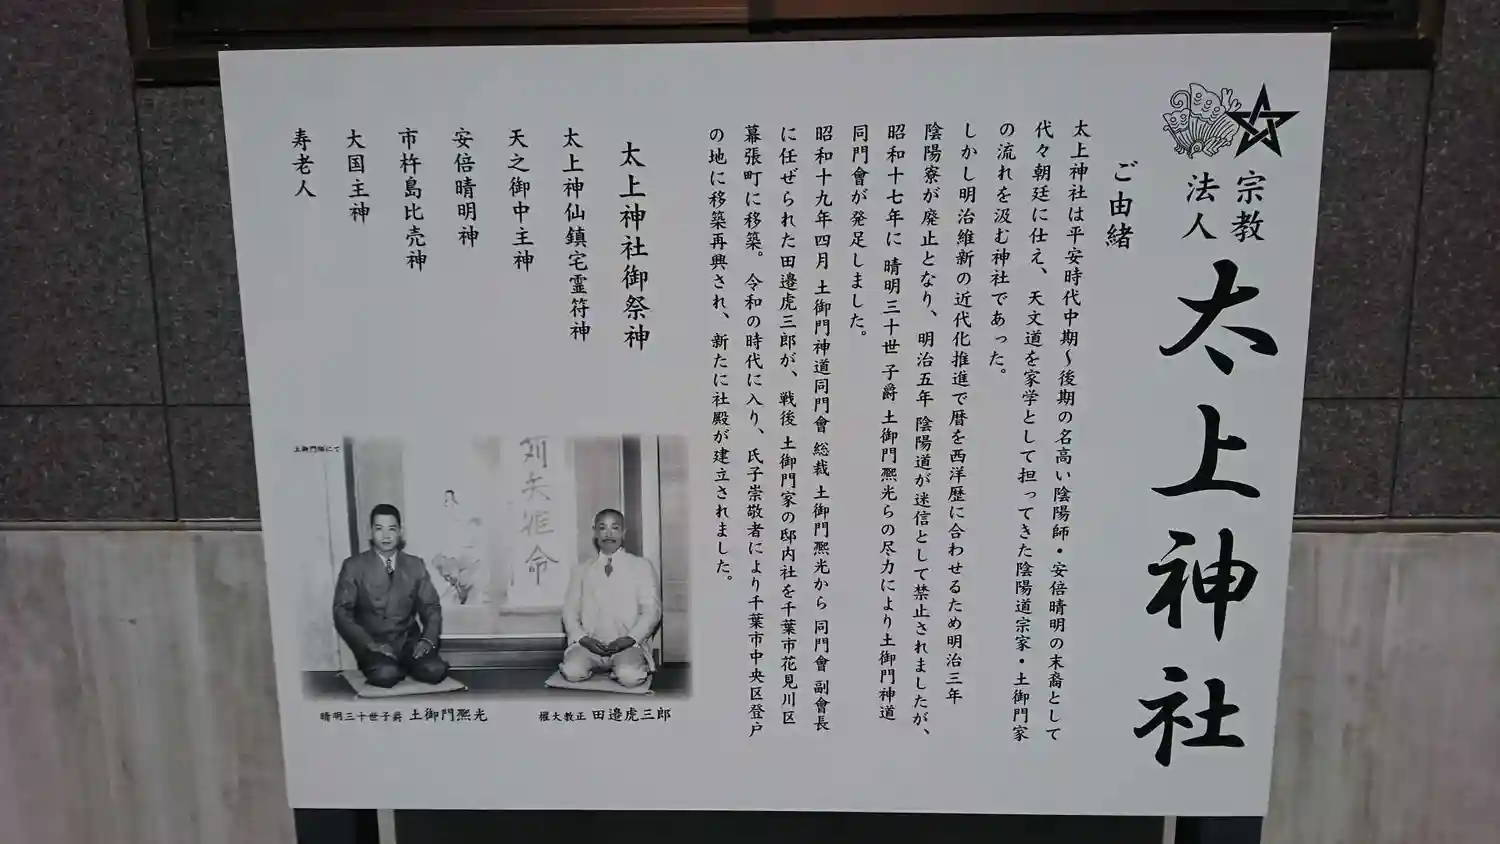 宗教
法人
太上神社
ご由緒
太上神社は平安時代中期～後期の名高い陰陽師・安倍晴明の末裔として
代々朝廷に仕え、天文道を家学として担ってきた陰陽道宗家・土御門家
の流れを汲む神社であった。
しかし明治維新の近代化推進で暦を西洋歴に合わせるため明治三年
陰陽寮が廃止となり、明治五年 陰陽道が迷信として禁止されましたが、
昭和十七年に 晴明三十世 子爵 土御門熈光らの尽力により土御門神道
同門會が発足しました。
昭和十九年四月 土御門神道同門會 総裁 土御門熈光から 同門會 副會長
に任ぜられた田邉虎三郎が、戦後 土御門家の邸内社を千葉市花見川区
幕張町に移築。令和の時代に入り、氏子崇敬者により千葉市中央区登戸
の地に移築再興され、新たに社殿が建立されました。
太上神社御祭神
太上神仙鎮宅霊符神
天之御中主神
安倍晴明神
市杵島比売神
大国主神
寿老人
土御門邸にて
晴明三十世子爵 土御門熈光
権大教正 田邉虎三郎